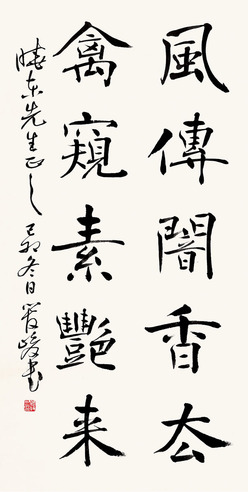 風傳闇香厺
禽窺素艷来
晓东先生正之 己卯冬日 管峻书